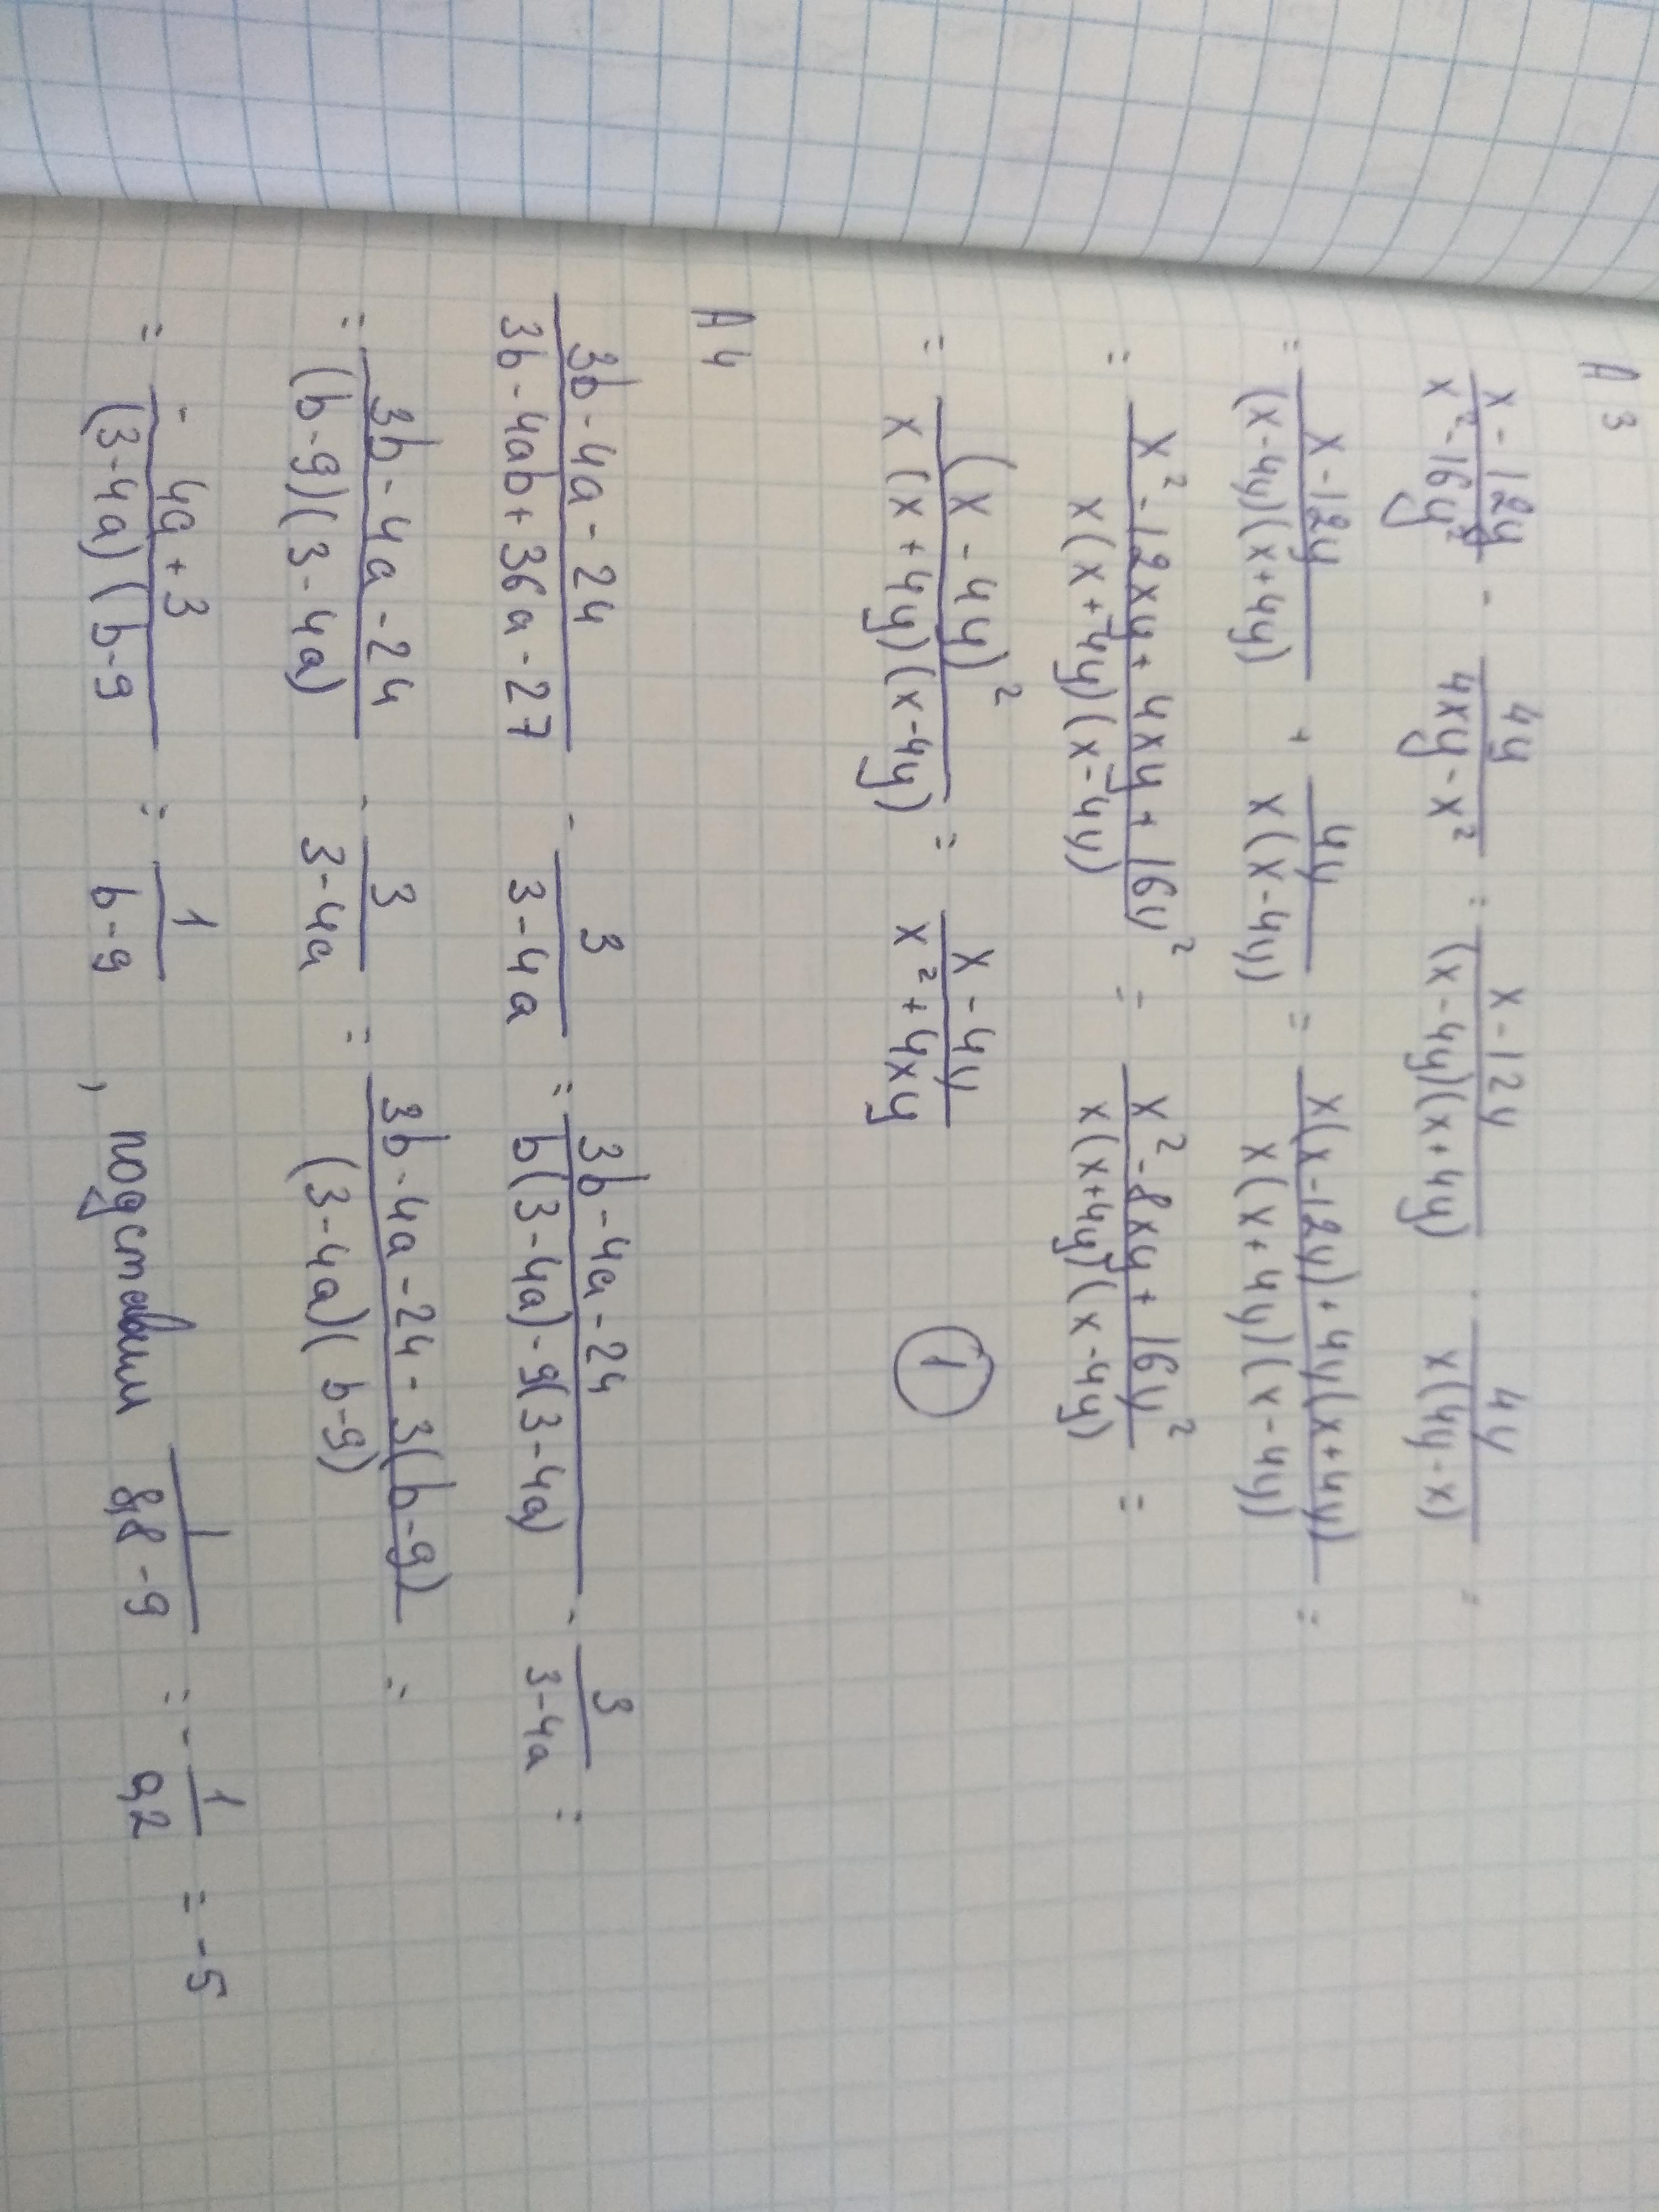 A 3
(x - 12y)/(x² - 16y²) - 4y/(4xy - x²) = (x - 12y)/((x - 4y)(x + 4y)) - 4y/(x(4y - x)) =
= (x - 12y)/((x - 4y)(x + 4y)) + 4y/(x(x - 4y)) = (x(x - 12y) + 4y(x + 4y))/(x(x + 4y)(x - 4y)) =
= (x² - 12xy + 4xy + 16y²)/(x(x + 4y)(x - 4y)) = (x² - 8xy + 16y²)/(x(x + 4y)(x - 4y)) =
= (x - 4y)²/(x(x + 4y)(x - 4y)) = (x - 4y)/(x² + 4xy) 1
A 4
(3b - 4a - 24)/(3b - 4ab + 36a - 27) - 3/(3 - 4a) = (3b - 4a - 24)/(b(3 - 4a) - 9(3 - 4a)) - 3/(3 - 4a) =
= (3b - 4a - 24)/((b - 9)(3 - 4a)) - 3/(3 - 4a) = (3b - 4a - 24 - 3(b - 9))/((3 - 4a)(b - 9)) =
= (-4a + 3)/((3 - 4a)(b - 9) = 1/(b - 9) , подставим 1/(8,8 - 9) = - 1/0,2 = -5